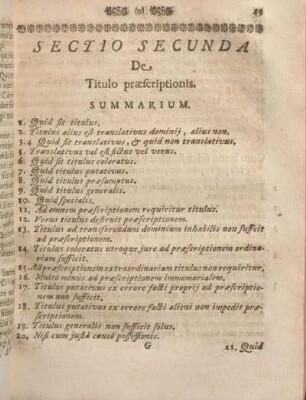 (o) 49
SECTIO SECUNDA
De
Titulo præscriptionis.
SUMMARIUM.
1. Quid sit titulus.
2. Titulus alius est translativus dominij, alius non.
3.4 Quid sit translativus, & quid non translativus,
5. Translativus vel est fictus vel verus.
6. Quid sit titulus coloratus.
7. Quid titulus putativus.
8. Quid titulus præsumptus.
9. Quid titulus generalis.
10. Quid specialis.
11. Ad omnem præscriptionem requiritur titulus.
12. Verus titulus destruit præscriptionem.
13. Titulus ad transferendum dominium inhabilis non sufficit
ad præscriptionem.
14. Titulus coloratus utroque jure ad præscriptionem ordina-
riam sufficit.
15. Ad præscriptionem extraordinariam titulus non requiritur,
16. Multò minus ad præscriptionem immemorialem.
17. Titulus putativus ex errore facti proprij ad præscriptio-
nem non sufficit.
18. Titulus putativus ex errore facti alieni non impedit præ-
scriptionem.
19. Titulus generalis non sufficit solus.
20. Nisi cum justâ causâ possessionis.
G 21. Quid